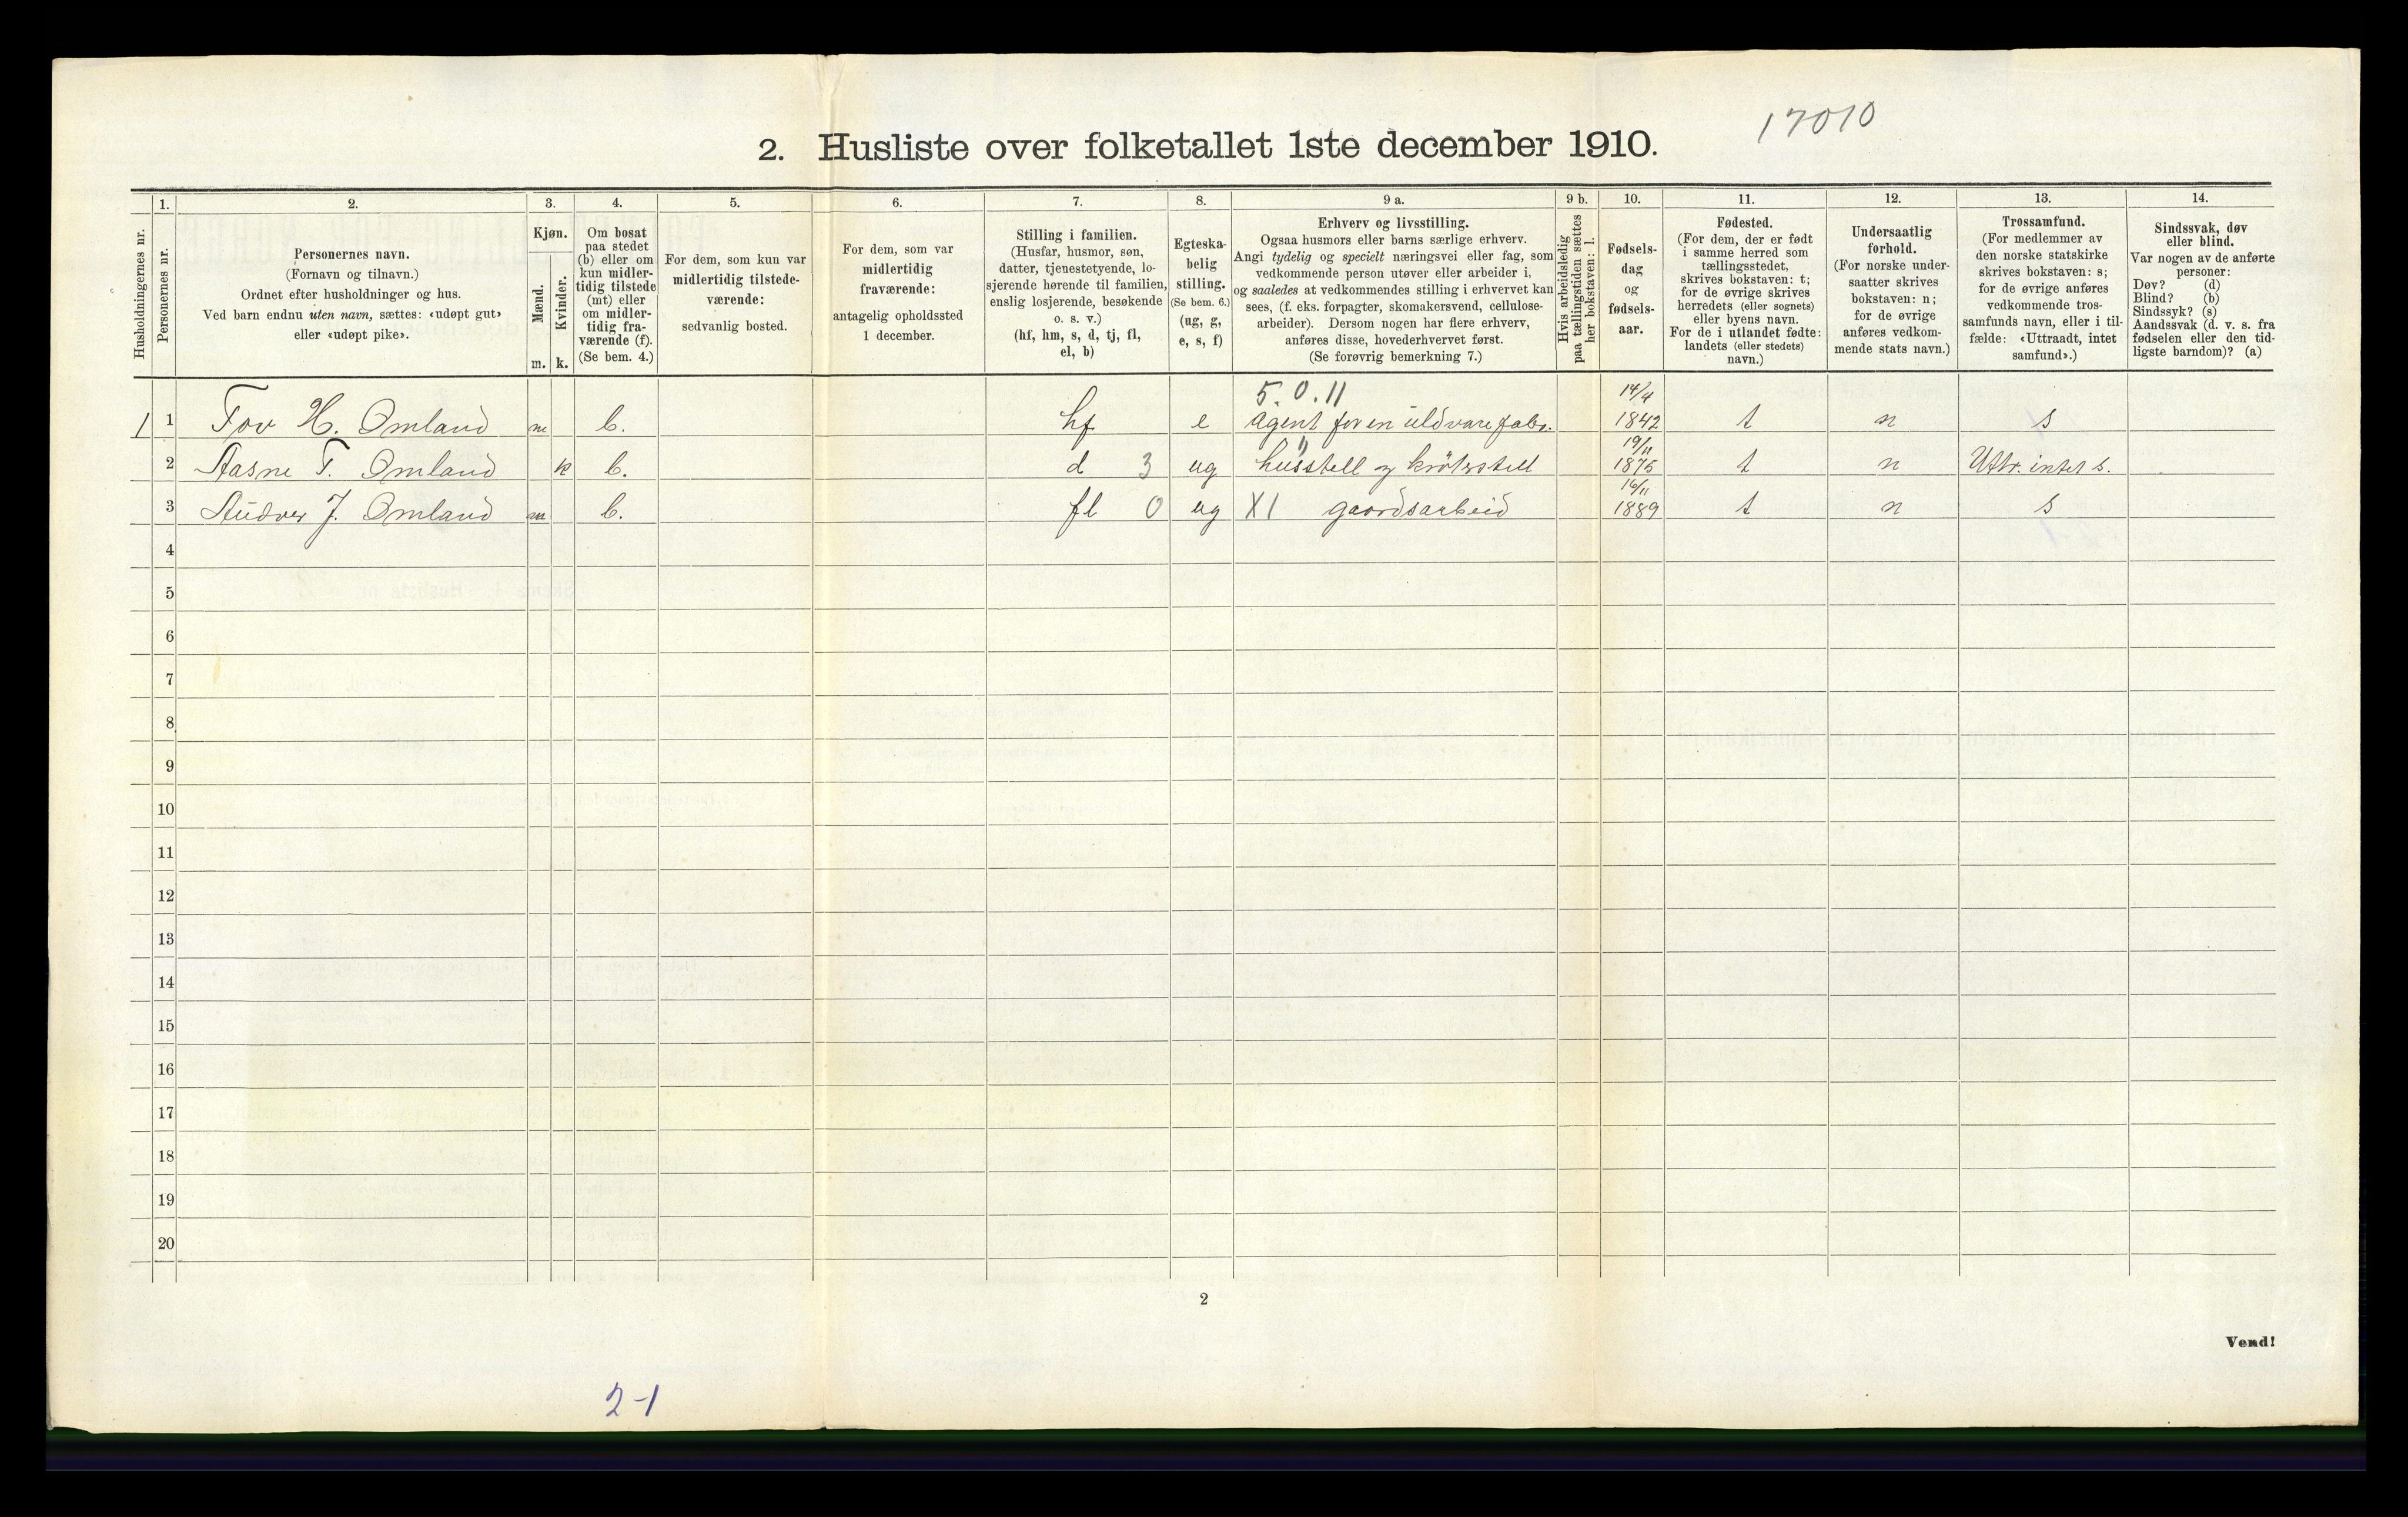 17010
2. Husliste over folketallet 1ste december 1910.
Husholdningernes nr.
1.
Personernes nr.
2.
Personernes navn.
(Fornavn og tilnavn.)
Ordnet efter husholdninger og hus.
Ved barn endnu uten navn, sættes: «udøpt gut»
eller «udøpt pike».
3.
Kjøn.
Mænd.
Kvinder.
m. k.
4.
Om bosat
paa stedet
(b) eller om
kun midler-
tidig tilstede
(mt) eller
om midler-
tidig fra-
værende (f).
(Se bem. 4.)
5.
For dem, som kun var
midlertidig tilstede-
værende:
sedvanlig bosted.
6.
For dem, som var
midlertidig
fraværende:
antagelig opholdssted
1 december.
7.
Stilling i familien.
(Husfar, husmor, søn,
datter, tjenestetyende, lo-
sjerende hørende til familien,
enslig losjerende, besøkende
o. s. v.)
(hf, hm, s, d, tj, fl,
el, b)
8.
Egteska-
belig
stilling.
(Se bem. 6.)
(ug, g,
e, s, f)
9 a.
Erhverv og livsstilling.
Ogsaa husmors eller barns særlige erhverv.
Angi tydelig og specielt næringsvei eller fag, som
vedkommende person utøver eller arbeider i,
og saaledes at vedkommendes stilling i erhvervet kan
sees, (f. eks. forpagter, skomakersvend, cellulose-
arbeider). Dersom nogen har flere erhverv,
anføres disse, hovederhvervet først.
(Se forøvrig bemerkning 7.)
9 b.
Hvis arbeidsledig
paa tællingstiden sættes
her bokstaven: l.
10.
Fødsels-
dag
og
fødsels-
aar.
11.
Fødested.
(For dem, der er født
i samme herred som
tællingsstedet,
skrives bokstaven: t;
for de øvrige skrives
herredets (eller sognets)
eller byens navn.
For de i utlandet fødte:
landets (eller stedets)
navn.)
12.
Undersaatlig
forhold.
(For norske under-
saatter skrives
bokstaven: n;
for de øvrige
anføres vedkom-
mende stats navn.)
13.
Trossamfund.
(For medlemmer av
den norske statskirke
skrives bokstaven: s;
for de øvrige anføres
vedkommende tros-
samfunds navn, eller i til-
fælde: «Uttraadt, intet
samfund».)
14.
Sindssvak, døv
eller blind.
Var nogen av de anførte
personer:
Døv? (d)
Blind? (b)
Sindssyk? (s)
Aandssvak (d. v. s. fra
fødselen eller den tid-
ligste barndom)? (a)
5.0.11 14/4
1 1 Tov H. Omland m b. hf e agent for en uldvarefabr. 1842 t n s
" 19/11
2 Aasne T. Omland k b. d 3 ug husstell og krøterstell 1875 t n Uttr. intet s.
16/11
3 Audver J. Omland m b. fl 0 ug XI gaardsarbeid 1889 t n s
4
5
6
7
8
9
10
11
12
13
14
15
16
17
18
19
20
2
Vend!
2-1